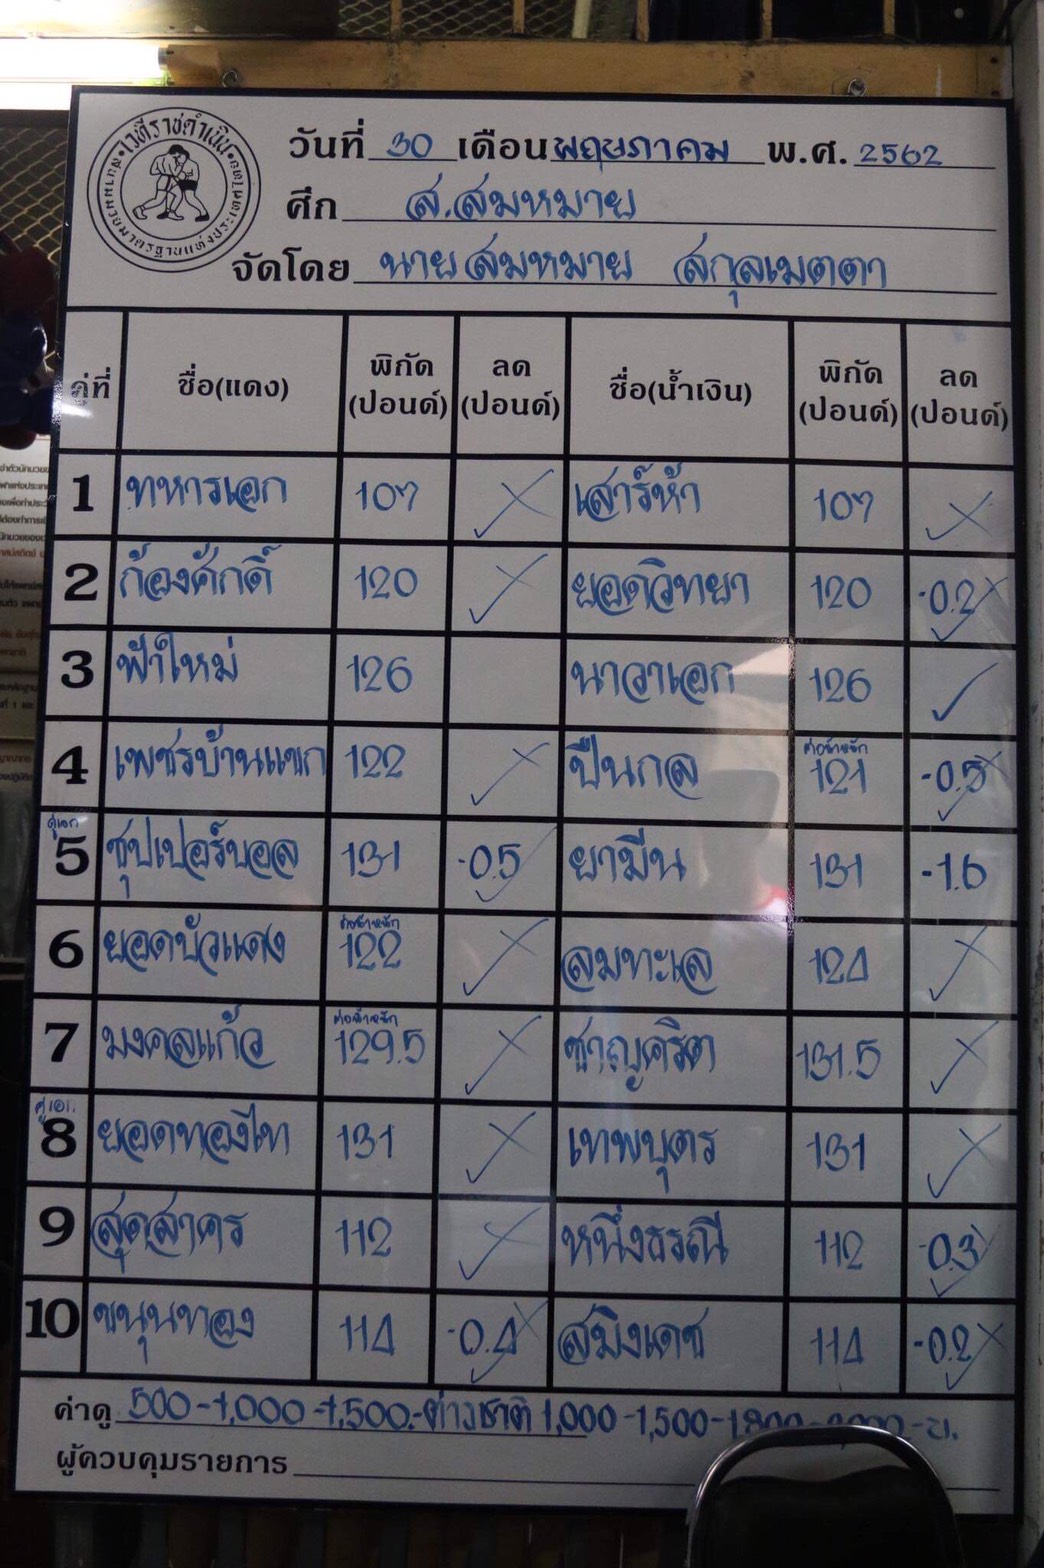 วันที่ 30 เดือน พฤษภาคม พ.ศ. 2562
ศึก ส.สมหมาย
จัดโดย นายสมหมาย สกุลเมตตา
คู่ที่ ชื่อ(แดง) พิกัด (ปอนด์) ลด (ปอนด์) ชื่อ(น้ำเงิน) พิกัด (ปอนด์) ลด (ปอนด์)
1 ทหารเอก 107 เสาร์ห้า 107
2 ก้องศักดิ์ 120 ยอดวิทยา 120 -0.2
3 ฟ้าใหม่ 126 นาวาเอก 126
4 เพชรบ้านแขก 122 ปืนกล ต่อน้ำหนัก 121 -0.5
คู่เอก 5 ซุปเปอร์บอล 131 -0.5 ยามีน 131 -1.6
6 ยอดบัวแดง ต่อน้ำหนัก 122 ลมทะเล 124
7 มงคลแก้ว ต่อน้ำหนัก 129.5 ชาญศิริตา 131.5
8 ยอดทองไท 131 เทพบุตร 131
9 สุดสาคร 112 หนึ่งธรณี 112 -0.3
10 ขุนทอง 114 -0.4 สมิงเดช 114 -0.2
ค่าดู 500-1,000-1,500.-ต่างชาติ 1,000-1,500-1,800
ผู้ควบคุมรายการ